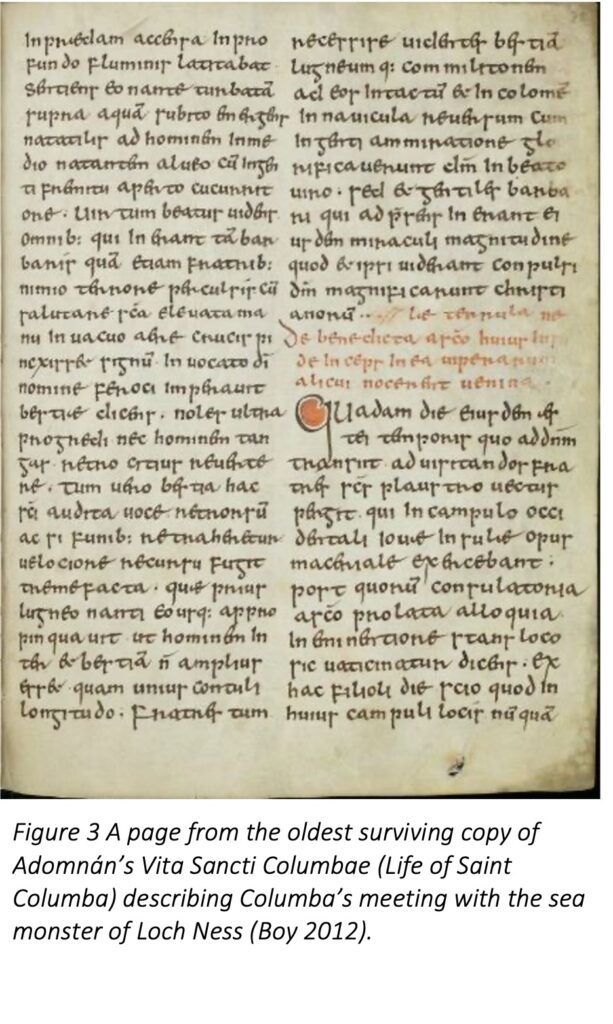 In praedam accensa In pro
fundo fluminis latitabat
Sentiens eo nante turbatā
supra aquā subito emergens
natatilis ad hominem In me
dio natantem alueo cū Ingen
ti fremitu aperto cucurrit
ore. Uir tum beatus uidens
omnib: qui Inerant tā bar
baris quā etiam fratrib:
nimio terrore perculsis cū
salutare scā eleuata ma
nu In uacuo aere crucis pi
nexisset signū. In uocato dī
nomine feroci Imperauit
bestiae dicens. noles ultra
progredi nec hominem tan
gas retro citius reuerte
re. tum uero bestia hac
scī audita uoce retrorsū
ac si funib: retraheretur
uelociore recursu fugit
tremefacta. quae prius
lugneo nanti eo usq: appro
pinquauit ut hominem In
ter & bestiā n̄ amplius
esset quam unius contuli
longitudo. Fratres tum
recessisse uidentes bestiā
lugneumq: commilitonem
ad eos Intactū & In colomē
In nauicula reuersum cum
Ingenti ammiratione glo
rificauerunt dm̄ In beato
uiro. sed & gentiles barba
ri qui ad p̄sens In erant ei
usdem miraculi magnitudine
quod & ipsi uiderant conpulsi
dm̄ magnificarunt christi
anorū..
De benedicta arcō huius
alicui nocerent
Quadam die eiusdem
tei temporis quo ad dn̄m
transiit ad uisitandos fra
tres scs plaustro uectus
pergit. qui In campulo occi
dentali Iouae Insulae opus
materiale exercebant.
post quorū consulatoria
a scō prolata alloquia
In eminentiore stans loco
sic uaticinatur dicens. ex
hac filioli die scio quod In
huius campuli locis nūquā
Figure 3 A page from the oldest surviving copy of
Adomnán’s Vita Sancti Columbae (Life of Saint
Columba) describing Columba’s meeting with the sea
monster of Loch Ness (Boy 2012).